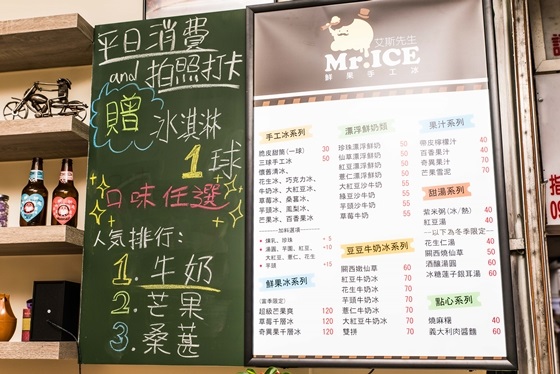 平日消費
and 拍照打卡
贈 冰淇淋
1球
口味任選
人気排行:
1. 牛奶
2. 芒果
3. 桑葚
艾斯先生
Mr.ICE
鮮果手工冰
手工冰系列
脆皮甜筒(一球) 30
三球手工冰 50
懷舊清冰、
花生冰、巧克力冰、
牛奶冰、大紅豆冰、
草莓冰、桑葚冰、
芋頭冰、鳳梨冰、
芒果冰、百香果冰
加料選澆
煉乳、珍珠 +5
湯圓、芋圓、紅豆、 +10
大紅豆、薏仁、花生
芋頭 +15
鮮果冰系列
(當季限定)
超級芒果爽 120
草莓千層冰 120
奇異果千層冰 120
漂浮鮮奶類
珍珠漂浮鮮奶 50
仙草漂浮鮮奶 50
紅豆漂浮鮮奶 50
薏仁漂浮鮮奶 50
大紅豆沙牛奶 55
綠豆沙牛奶 55
芋頭沙牛奶 55
草莓牛奶 55
豆豆牛奶冰系列
關西嫩仙草 60
紅豆牛奶冰 70
花生牛奶冰 70
芋頭牛奶冰 70
薏仁牛奶冰 70
大紅豆牛奶冰 70
雙拼 70
果汁系列
帶皮檸檬汁 40
百香果汁 40
奇異果汁 40
芒果雪泥 70
甜湯系列
紫米粥(冰/熱) 40
紅豆湯 40
以下為冬季限定
花生仁湯 40
關西燒仙草 50
酒釀湯圓 60
冰糖蓮子銀耳湯 60
點心系列
燒麻糬 40
義大利肉醬麵 60